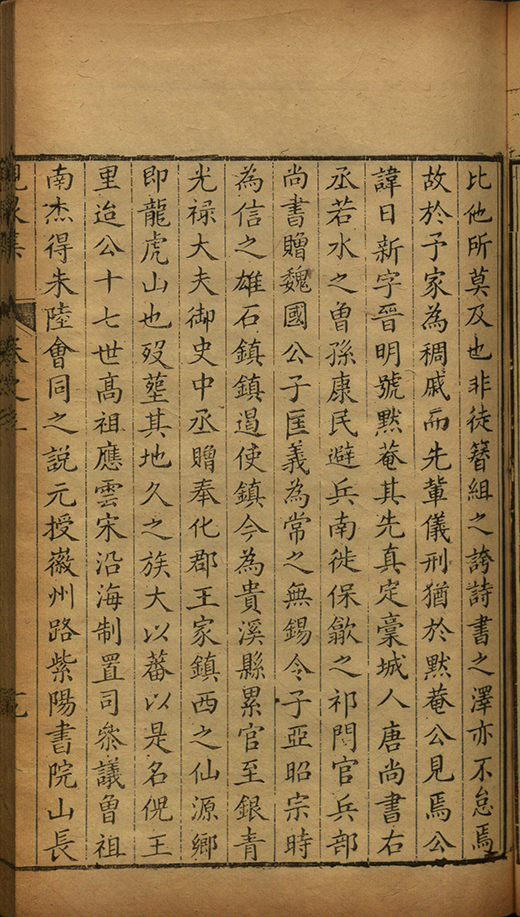 比他所莫及也非徒簪組之誇詩書之澤亦不怠焉
故於予家為稠戚而先輩儀刑猶於默菴公見焉公
諱日新字晉明號默菴其先真定稾城人唐尚書右
丞若水之曾孫康民避兵南徙保歙之祁門官兵部
尚書贈魏國公子匡義為常之無錫令子亞昭宗時
為信之雄石鎮鎮遏使鎮今為貴溪縣累官至銀青
光禄大夫御史中丞贈奉化郡王家鎮西之仙源鄉
即龍虎山也歿塟其地久之族大以蕃以是名倪王
里迨公十七世高祖應雲宋沿海制置司叅議曾祖
南杰得朱陸會同之説元授徽州路紫陽書院山長
集
卷之